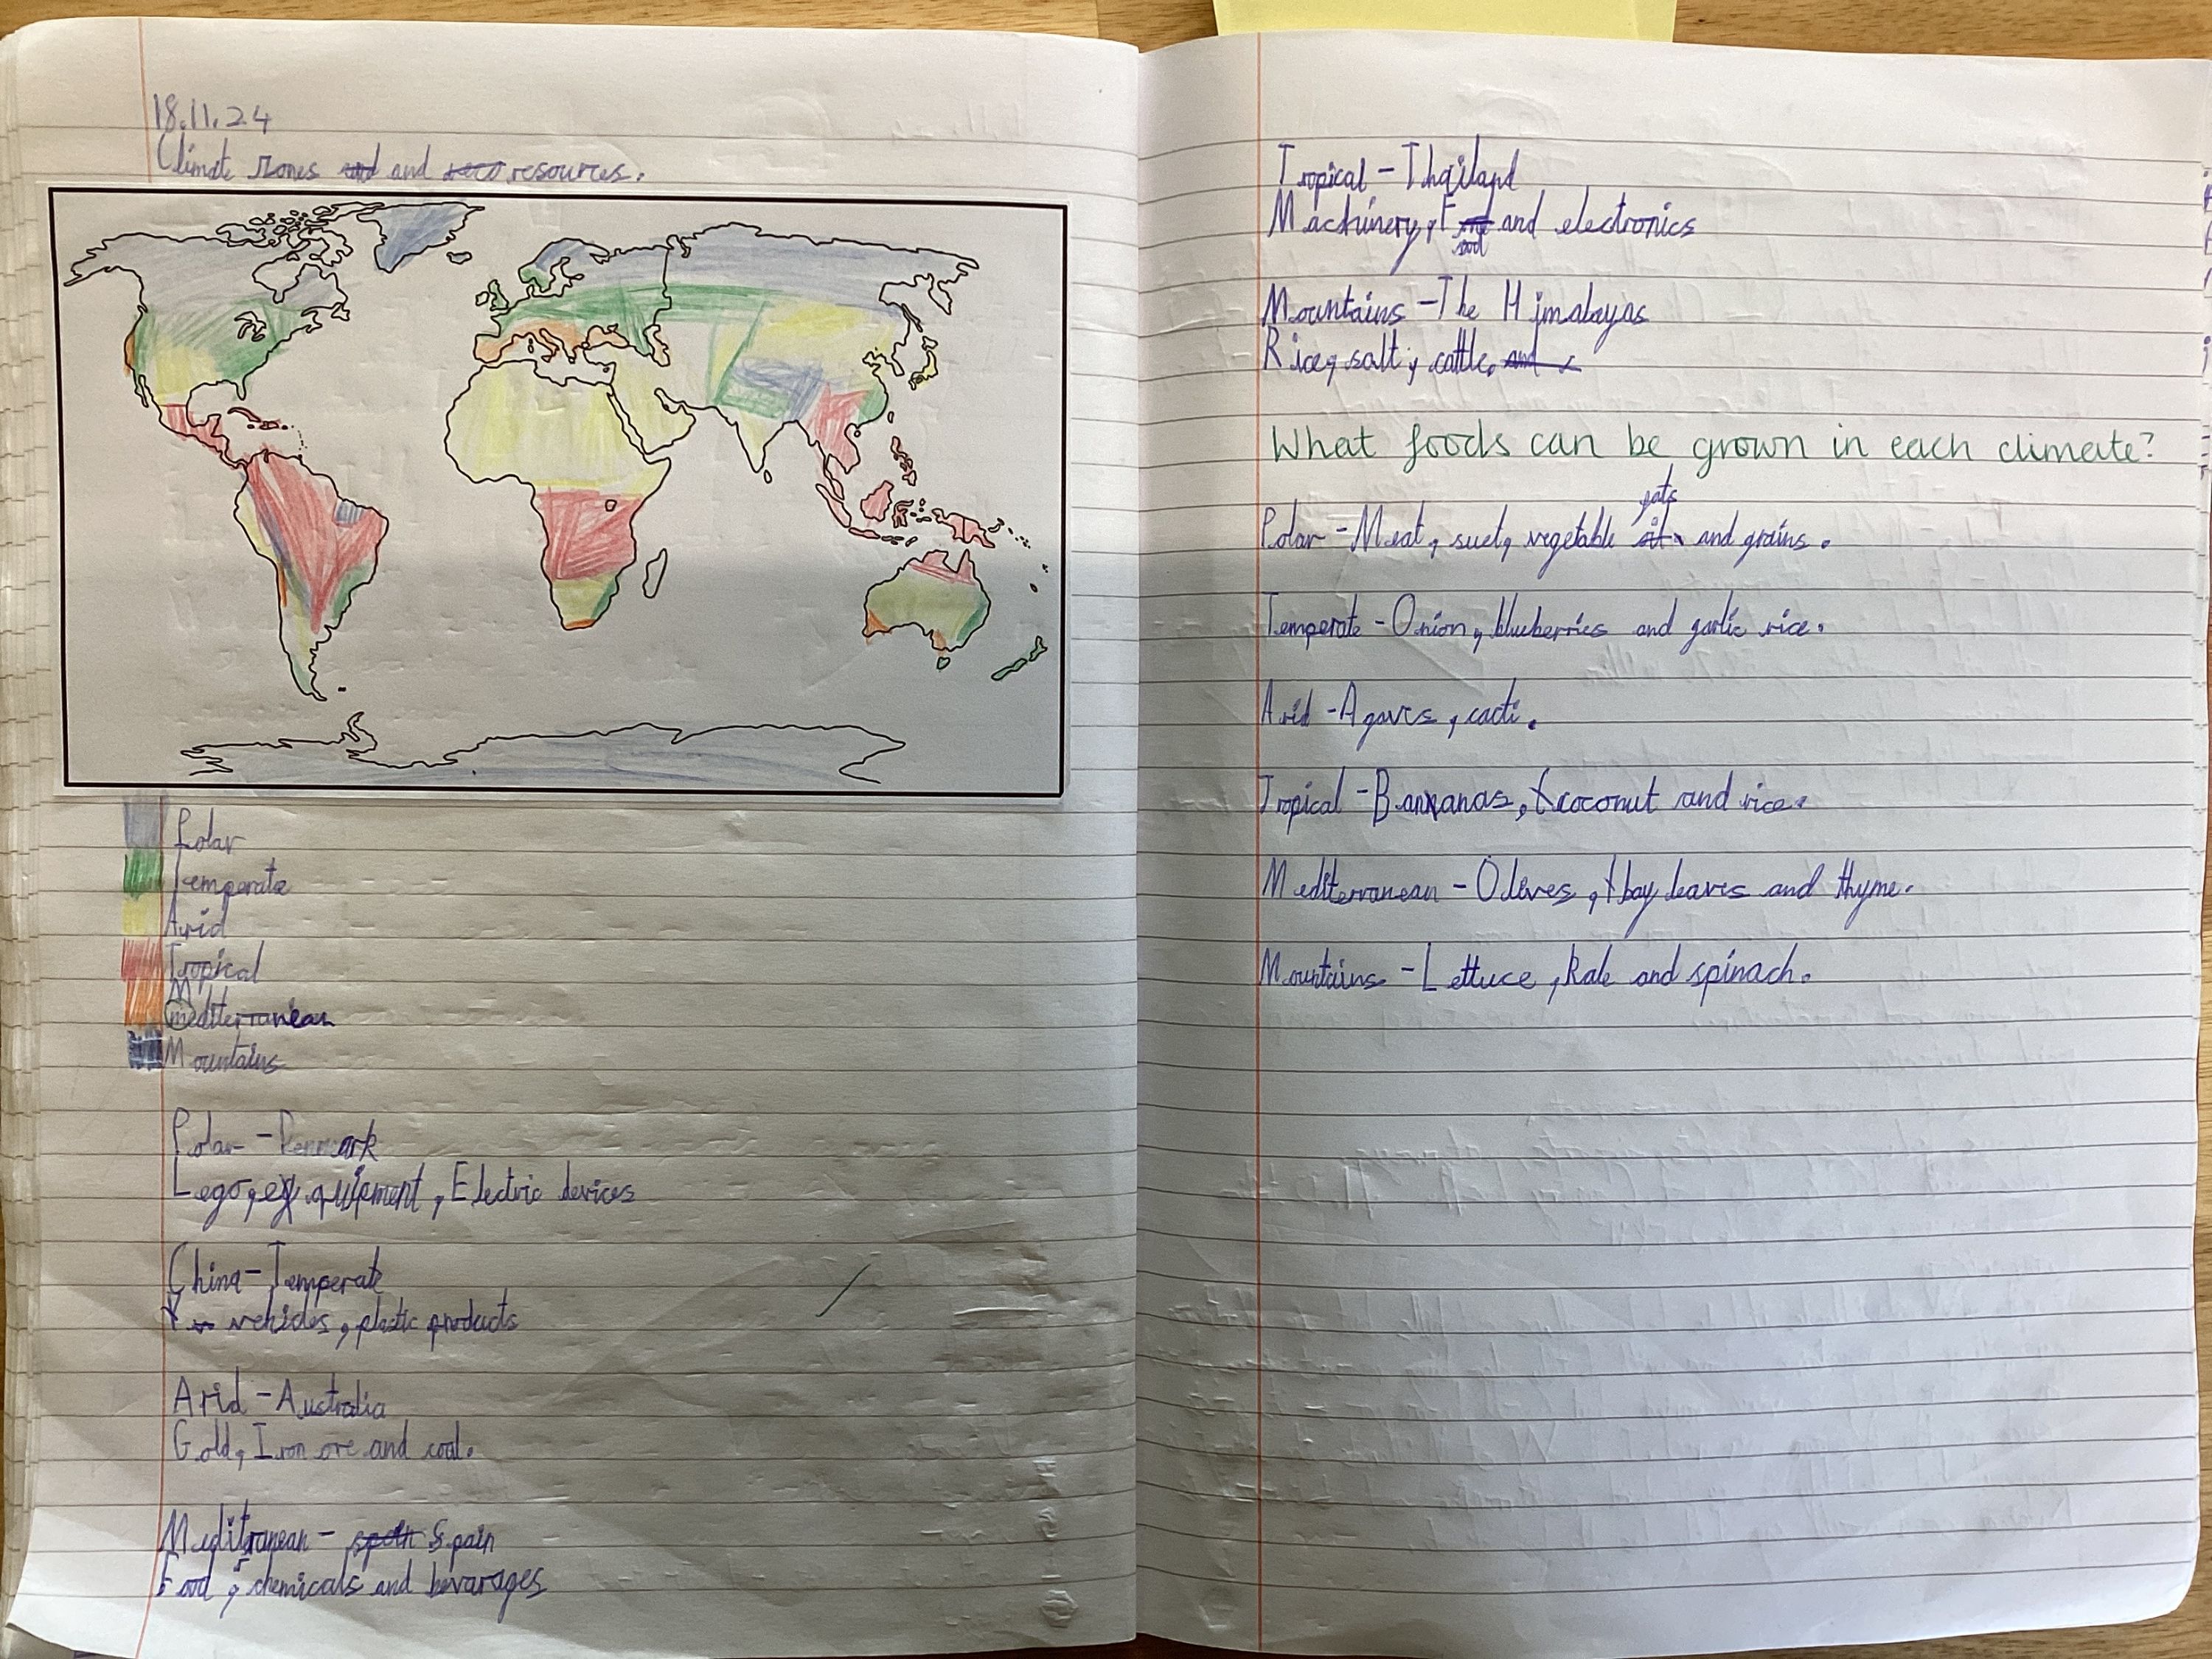 18.11.24
Climate zones and and resources.
Polar
Temperate
Arid
Tropical
Mediterranean
Mountains
Polar - Denmark
Lego, equipment, Electric devices
China - Temperate
vehicles, plastic products
Arid - Australia
Gold, Iron ore and coal.
Mediterranean - spain Spain
Food, chemicals and bevarages
Tropical - Thailand
Machinery, Food and electronics
Mountains - The Himalayas
Rice, salt, cattle. and
What foods can be grown in each climate?
Polar - Meat, suet, vegetable and grains.
Temperate - Onion, blueberries and garlic rice.
Arid - Agaves, cacti.
Tropical - Bananas, coconut and rice.
Mediterranean - Olives, bay leaves and thyme.
Mountains - Lettuce, kale and spinach.